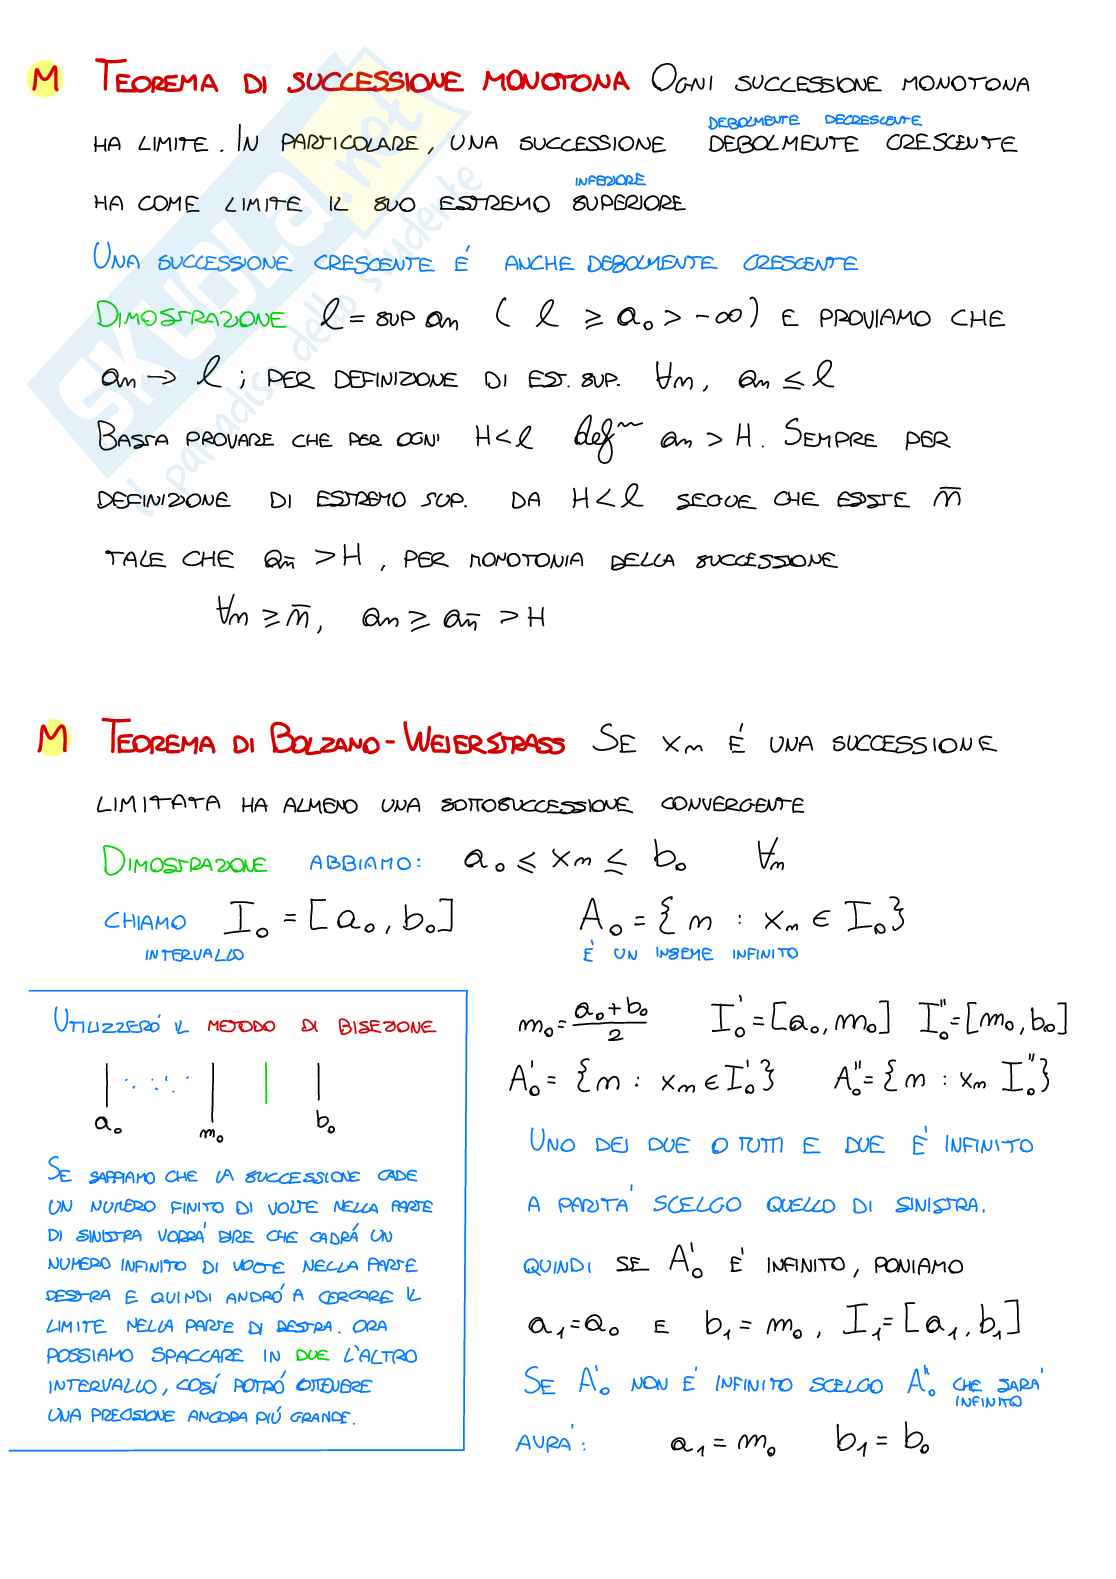 M TEOREMA DI SUCCESSIONE MONOTONA OGNI SUCCESSIONE MONOTONA
DEBOLMENTE DECRESCENTE
HA LIMITE. IN PARTICOLARE, UNA SUCCESSIONE DEBOLMENTE CRESCENTE
INFERIORE
HA COME LIMITE IL SUO ESTREMO SUPERIORE
UNA SUCCESSIONE CRESCENTE É ANCHE DEBOLMENTE CRESCENTE
DIMOSTRAZIONE l = SUP an ( l ≥ a₀ > -∞ ) E PROVIAMO CHE
an → l ; PER DEFINIZIONE DI EST. SUP. ∀n, an ≤ l
BASTA PROVARE CHE PER OGNI H < l def~ an > H. SEMPRE PER
DEFINIZIONE DI ESTREMO SUP. DA H < l SEGUE CHE ESISTE n̅
TALE CHE an̅ > H, PER MONOTONIA DELLA SUCCESSIONE
∀n ≥ n̅, an ≥ an̅ > H
M TEOREMA DI BOLZANO-WEIERSTRASS SE xn É UNA SUCCESSIONE
LIMITATA HA ALMENO UNA SOTTOSUCCESSIONE CONVERGENTE
DIMOSTRAZIONE ABBIAMO: a₀ ≤ xn ≤ b₀ ∀n
CHIAMO I₀ = [a₀, b₀] A₀ = {n : xn ∈ I₀}
INTERVALLO É UN INSIEME INFINITO
UTILIZZERÓ IL METODO DI BISEZIONE
a₀ m₀ b₀
SE SAPPIAMO CHE LA SUCCESSIONE CADE
UN NUMERO FINITO DI VOLTE NELLA PARTE
DI SINISTRA VORRÁ DIRE CHE CADRÁ UN
NUMERO INFINITO DI VOLTE NELLA PARTE
DESTRA E QUINDI ANDRÓ A CERCARE IL
LIMITE NELLA PARTE DI DESTRA. ORA
POSSIAMO SPACCARE IN DUE L'ALTRO
INTERVALLO, COSÍ POTRÓ OTTENERE
UNA PRECISIONE ANCORA PIÚ GRANDE.
m₀ = (a₀+b₀)/2 I₀' = [a₀, m₀] I₀'' = [m₀, b₀]
A₀' = {n : xn ∈ I₀'} A₀'' = {n : xn I₀''}
UNO DEI DUE O TUTTI E DUE É INFINITO
A PARITA' SCELGO QUELLO DI SINISTRA.
QUINDI SE A₀' É INFINITO, PONIAMO
a₁=a₀ E b₁=m₀, I₁=[a₁, b₁]
SE A₀' NON É INFINITO SCELGO A₀'' CHE SARA'
INFINITO
AVRA': a₁ = m₀ b₁ = b₀
SKUOLA.net
il paradiso dello studente